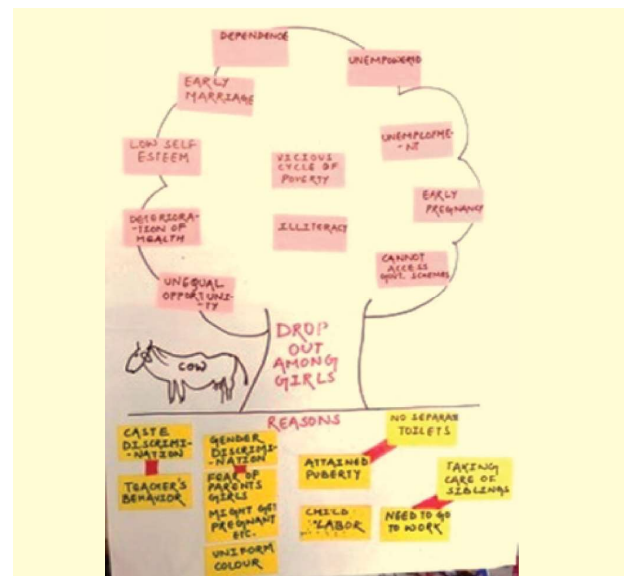 DEPENDENCE
UNEMPOWERD
EARLY
MARRIAGE
UNEMPLOYME-
-NT
LOW SELF
ESTEEM
VICIOUS
CYCLE OF
POVERTY
EARLY
PREGNANCY
DETERIORA-
-TION OF
HEALTH
ILLITERACY
CANNOT
ACCESS
GOVT. SCHEMES
UNEQUAL
OPPORTUNI-
-TY
DROP
OUT
AMONG
GIRLS
COW
REASONS
NO SEPARATE
TOILETS
CASTE
DISCRIMI-
-NATION
TEACHER'S
BEHAVIOR
GENDER
DISCRIMI-
-NATION
FEAR OF
PARENTS
GIRLS
MIGHT GET
PREGNANT
ETC.
UNIFORM
COLOUR
ATTAINED
PUBERTY
CHILD
LABOR
TAKING
CARE OF
SIBLINGS
NEED TO GO
TO WORK